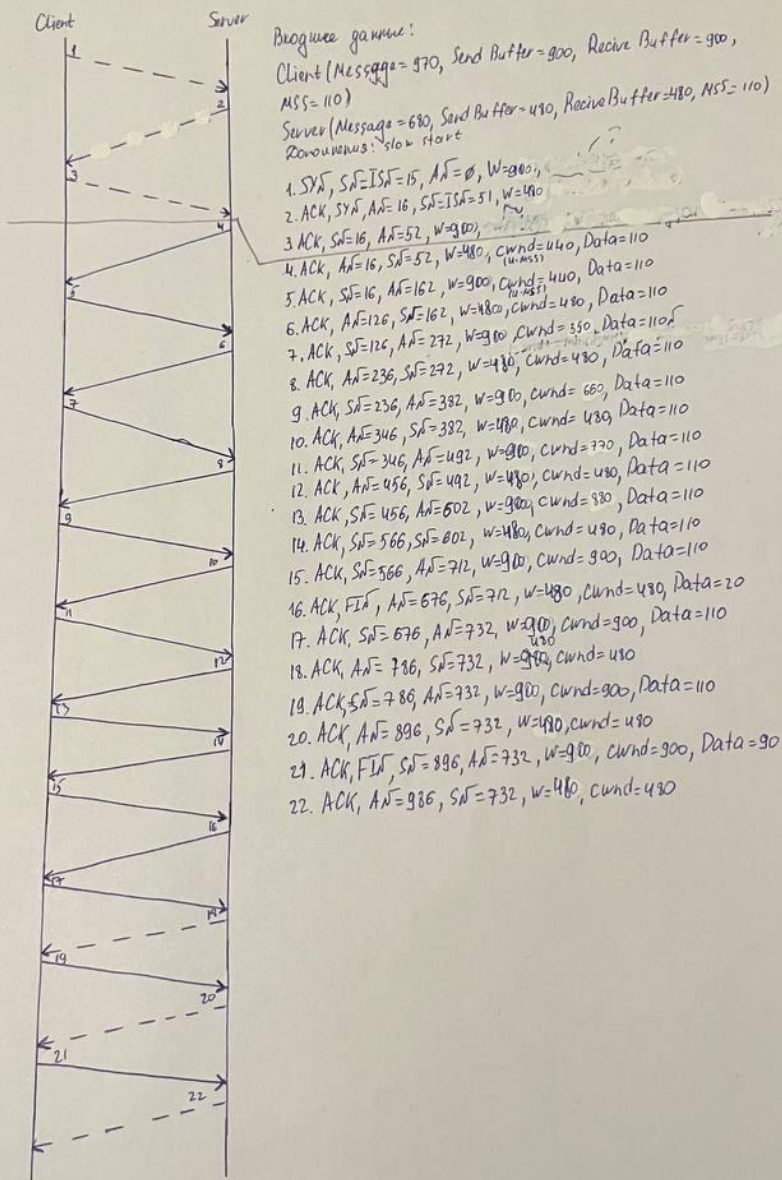 Client
Server
Входные данные:
Client (Message = 970, Send Buffer = 900, Recive Buffer = 900,
MSS = 110)
Server (Message = 680, Send Buffer = 480, Recive Buffer = 480, MSS = 110)
slow start
1. SYN, SN=ISN=15, AN=ø, W=900,
2. ACK, SYN, AN=16, SN=ISN=51, W=480
3 ACK, SN=16, AN=52, W=900,
4. ACK, AN=16, SN=52, W=480, cwnd=440, Data=110
(4·MSS)
5. ACK, SN=16, AN=162, W=900, cwnd=440, Data=110
(4·MSS)
6. ACK, AN=126, SN=162, W=480, cwnd=480, Data=110
7. ACK, SN=126, AN=272, W=900, cwnd=550, Data=110
8. ACK, AN=236, SN=272, W=480, cwnd=480, Data=110
9. ACK, SN=236, AN=382, W=900, cwnd=660, Data=110
10. ACK, AN=346, SN=382, W=480, cwnd=480, Data=110
11. ACK, SN=346, AN=492, W=900, cwnd=770, Data=110
12. ACK, AN=456, SN=492, W=480, cwnd=480, Data=110
13. ACK, SN=456, AN=602, W=900, cwnd=880, Data=110
14. ACK, SN=566, SN=602, W=480, cwnd=480, Data=110
15. ACK, SN=566, AN=712, W=900, cwnd=900, Data=110
16. ACK, FIN, AN=676, SN=712, W=480, cwnd=480, Data=20
17. ACK, SN=676, AN=732, W=900, cwnd=900, Data=110
480
18. ACK, AN=786, SN=732, W=900, cwnd=480
19. ACK, SN=786, AN=732, W=900, cwnd=900, Data=110
20. ACK, AN=896, SN=732, W=480, cwnd=480
21. ACK, FIN, SN=896, AN=732, W=900, cwnd=900, Data=90
22. ACK, AN=986, SN=732, W=480, cwnd=480
1
2
3
4
5
6
7
8
9
10
11
12
13
14
15
16
17
19
20
21
22